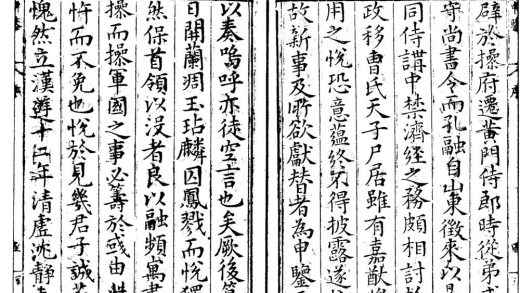 辟於操府遷黃門侍郎時從弟
守尚書令而孔融自山東徵來以
同侍講中禁濟經之務頗相討
政移曹氏天子尸居雖有嘉猷
用之悅恐意蘊終弗得披露遂
故新事及所欲獻替者為申鑒五
以奏嗚呼亦徒空言也矣厥後
日開蘭凋玉玷麟囚鳳戮而悅獨
然保首領以沒者良以融頻寓書
操而操軍國之事必籌於彧由
忤而不免也悅於見幾君子誠
愧然立漢十二年清虛沈靜